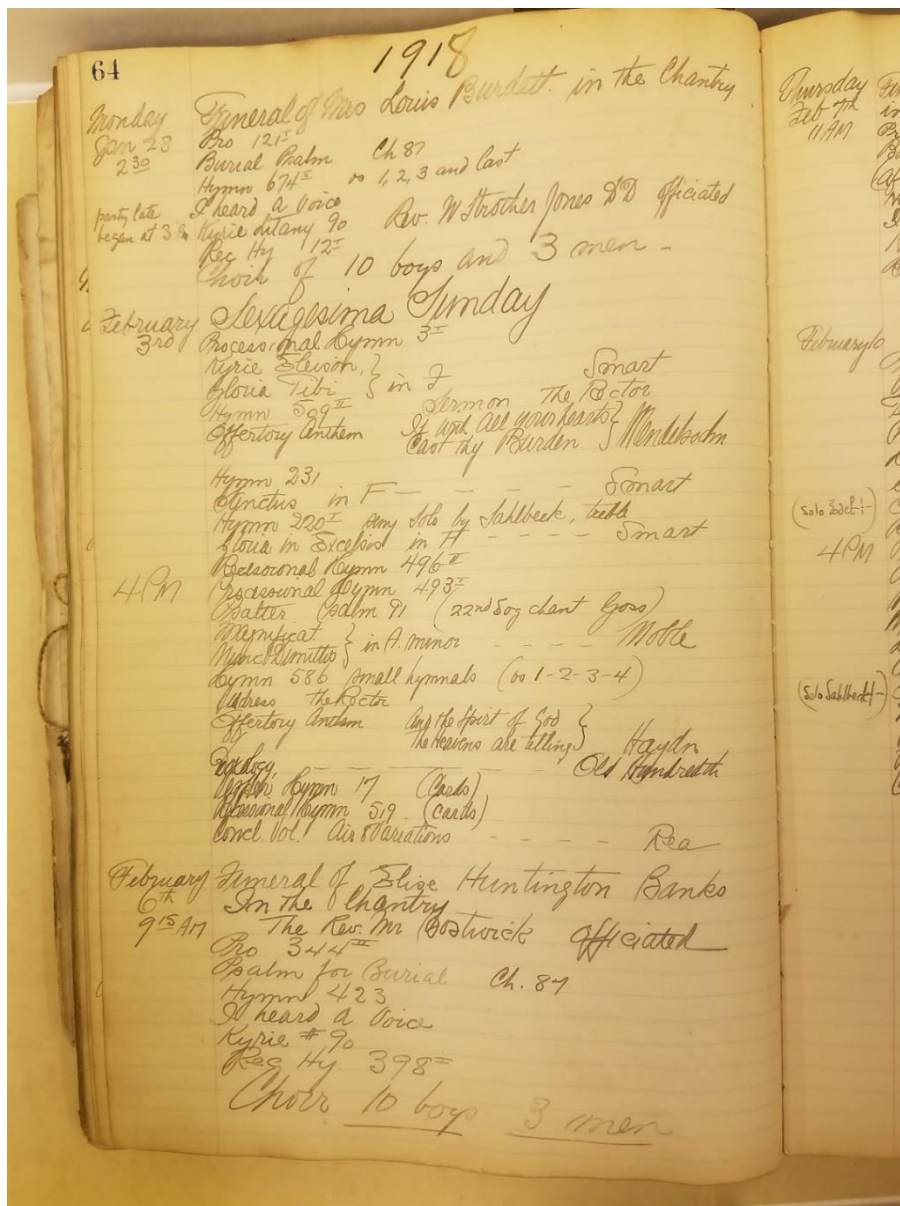 64
1918
Monday Funeral of Mrs Louis Burdett. in the Chantry
Jan 28 Pro 121 I
2 30 Burial Psalm Ch 87
Hymn 674 II vs 1, 2, 3 and last
I heard a Voice Rev. W Strother Jones DD officiated
party late
began at 3 PM Kyrie Litany 90
Rec Hy 12 I
Choir of 10 boys and 3 men -
February Sexagesima Sunday
3rd Processional Hymn 3 I
Kyrie Eleison, }
Gloria Tibi } in F Smart
Hymn 509 II Sermon The Rector
Offertory Anthem If with all your hearts }
Cast thy Burden } Mendelssohn
Hymn 231
Sanctus in F - - - - Smart
Hymn 220 I sung Solo by Sahlbeck, treble
Gloria in Excelsis in F - - - - Smart
Recessional Hymn 496 II
4 PM Processional Hymn 493 I
Psalter Psalm 91 (22nd day chant Goss)
Magnificat }
Nunc Dimittis } in A. minor - - - - Noble
Hymn 586 small hymnals (vs 1-2-3-4)
Address The Rector
Offertory Anthem And the Spirit of God }
The Heavens are telling } Haydn
Doxology, - - - - Old Hundredth
Hymn 17 (Cards)
Recessional Hymn 519. (cards)
Concl. Vol. Air & Variations - - - Rea
February Funeral of Elise Huntington Banks
6th In the Chantry
9 15 AM The Rev. Mr Bostwick officiated
Pro 344 II
Psalm for Burial Ch. 87
Hymn 423
I heard a Voice
Kyrie # 90
Rec Hy. 398 II
Choir 10 boys 3 men
Thursday
Feb 7th
11 AM
February 10
4 PM
(Solo Sahlbeck -)